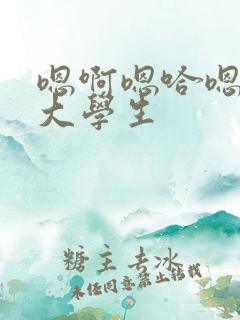 嗯啊嗯哈嗯
大學生
糖主去冰
未经同意禁止转载